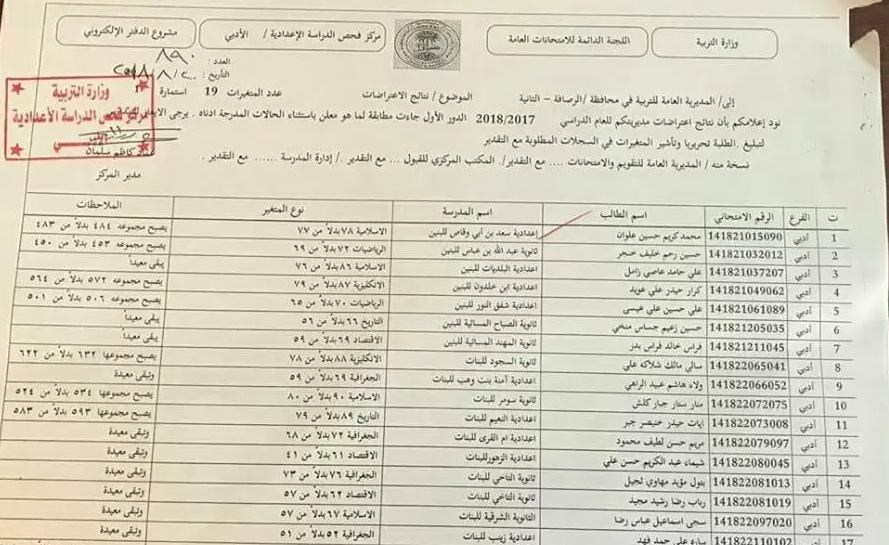 وزارة التربية
اللجنة الدائمة للامتحانات العامة
مركز فحص الدراسة الإعدادية / الأدبي
مشروع الدفتر الإلكتروني
العدد:
التاريخ:
وزارة التربية
مركز فحص الدراسة الأعدادية
إلى/ المديرية العامة للتربية في محافظة /الرصافة – الثانية
الموضوع / نتائج الاعتراضات
عدد المتغيرات 19 استمارة
نود إعلامكم بأن نتائج اعتراضات مديريتكم للعام الدراسي 2018/2017 الدور الأول جاءت مطابقة لما هو معلن باستثناء الحالات المدرجة ادناه . يرجى
لتبليغ .الطلبة تحريريا وتأشير المتغيرات في السجلات المطلوبة مع التقدير
نسخة منه / المديرية العامة للتقويم والامتحانات .... مع التقدير/ المكتب المركزي للقبول ... مع التقدير ./ إدارة المدرسة ...... مع التقدير .
كاظم سلمان
مدير المركز
ت الفرع الرقم الامتحاني اسم الطالب اسم المدرسة نوع المتغير الملاحظات
1 أدبي 141821015090 محمد كريم حسين علوان إعدادية سعد بن أبي وقاص للبنين الاسلامية ٧٨ بدلاً من ٧٧ يصبح مجموعه ٤٨٤ بدلاً من ٤٨٣
2 أدبي 141821032012 حسين رحم خليف حنجر ثانوية عبد الله بن عباس للبنين الرياضيات ٧٢ بدلاً من ٦٩ يصبح مجموعه ٤٥٣ بدلاً من ٤٥٠
3 أدبي 141821037207 علي حامد عاصي زامل اعدادية البلديات للبنين الاسلامية ٨٦ بدلاً من ٧٦ يبقى معيداً
4 أدبي 141821049062 كرار حيدر علي عويد اعدادية ابن خلدون للبنين الانكليزية ٨٧ بدلاً من ٧٩ يصبح مجموعه ٥٧٢ بدلاً من ٥٦٤
5 أدبي 141821061089 علي حسين علي عيسى اعدادية شفق النور للبنين الرياضيات ٧٠ بدلاً من ٦٥ يصبح مجموعه ٥٠٦ بدلاً من ٥٠١
6 أدبي 141821205035 حسين زعيم جساس منخي ثانوية الصباح المسائية للبنين التاريخ ٦٦ بدلاً من ٥٦ يبقى معيداً
7 أدبي 141821211045 فراس خالد فراس بدر ثانوية المهند المسائية للبنين الاقتصاد ٦٩ بدلاً من ٥٩ يبقى معيداً
8 أدبي 141822065041 سالي مالك شلاكه علي ثانوية السجود للبنات الانكليزية ٨٨ بدلاً من ٧٨ يصبح مجموعها ٦٣٢ بدلاً من ٦٢٢
9 أدبي 141822066052 ولاء هاشم عبيد الراهي اعدادية آمنة بنت وهب للبنات الجغرافية ٦٩ بدلاً من ٥٩ وتبقى معيدة
10 أدبي 141822072075 منار ستار جبار كلش ثانوية سومر للبنات الاسلامية ٩٠ بدلاً من ٨٠ يصبح مجموعها ٥٣٤ بدلاً من ٥٢٤
11 أدبي 141822073008 ايات حيدر خنيصر جبر اعدادية النعيم للبنات التاريخ ٨٩ بدلاً من ٧٩ يصبح مجموعها ٥٩٣ بدلاً من ٥٨٣
12 أدبي 141822079097 مريم حسن لطيف محمود اعدادية ام القرى للبنات الجغرافية ٧٢ بدلاً من ٦٨ وتبقى معيدة
13 أدبي 141822080045 شيماء عبد الكريم حسن علي اعدادية الزهور للبنات الاقتصاد ٦١ بدلاً من ٤١ وتبقى معيدة
14 أدبي 141822081013 بتول مؤيد مهاوي ثجيل ثانوية التاخي للبنات الجغرافية ٧٦ بدلاً من ٧٣ وتبقى معيدة
15 أدبي 141822081019 رباب رضا رشيد مجيد ثانوية التاخي للبنات الاقتصاد ٦٢ بدلاً من ٥٧ وتبقى معيدة
16 أدبي 141822097020 سجى اسماعيل عباس رضا الثانوية الشرقية للبنات الاسلامية ٦٧ بدلاً من ٥٧ وتبقى معيدة
17 أدبي 141822110102 ساره علي حمد فهد اعدادية زينب للبنات الجغرافية ٥٢ بدلاً من ٥١ وتبقى معيدة